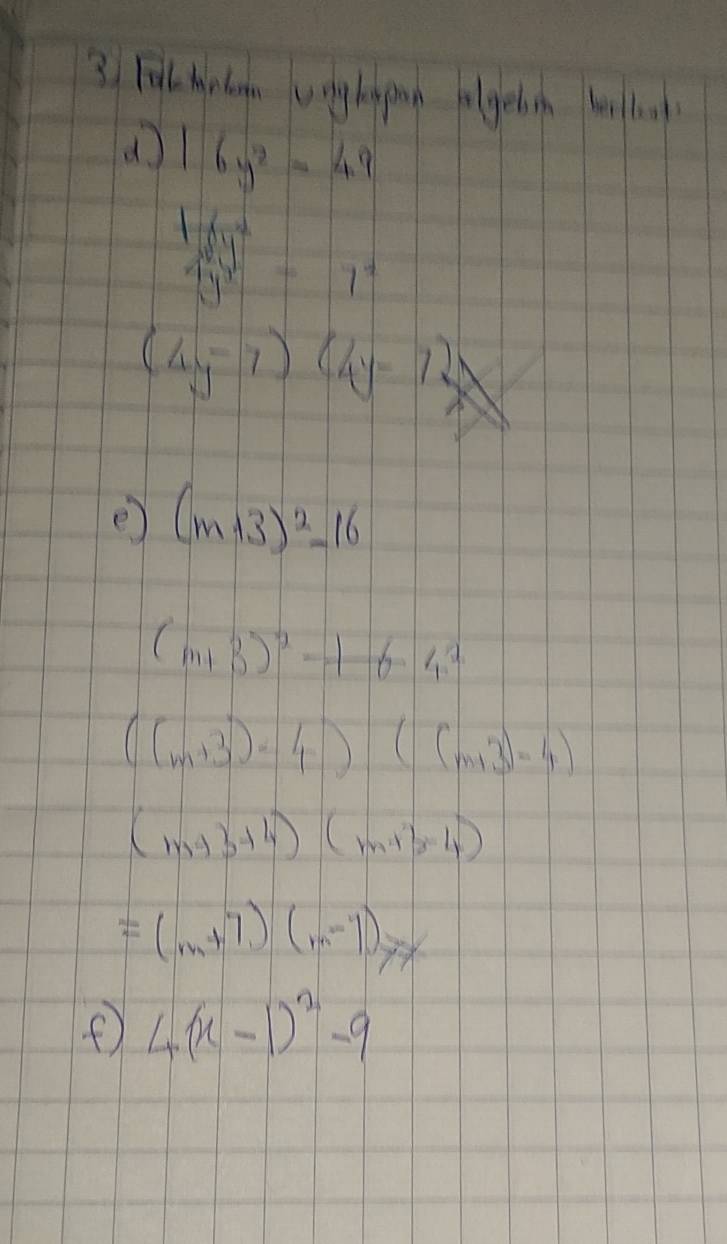 3) Faktorkan ungkapan algebra berikut:
d) 16y² - 49
- 7²
(4y - 7) (4y - 7)
e) (m+3)² - 16
(m+3)² - 16 4²
((m+3) - 4) ((m+3) - 4)
(m+3+4) (m+3-4)
= (m+7) (m-1)
f) 4(x - 1)² - 9